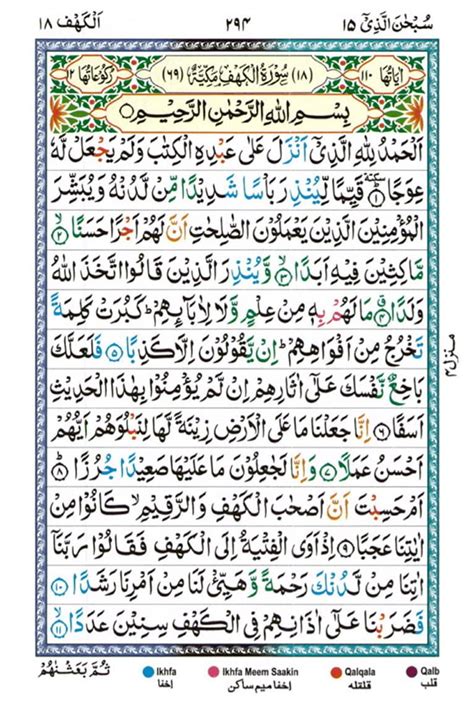 سُبْحٰنَ الَّذِیْۤ ۱۵ ۲۹۴ اَلْكَهْف ۱۸
اٰیَاتُهَا ۱۱۰ (۱۸) سُوْرَةُ الْكَهْفِ مَكِّیَّةٌ (۶۹) رُكُوْعَاتُهَا ۱۲
بِسْمِ اللّٰهِ الرَّحْمٰنِ الرَّحِیْمِ
اَلْحَمْدُ لِلّٰهِ الَّذِیْۤ اَنْزَلَ عَلٰی عَبْدِهِ الْكِتٰبَ وَلَمْ یَجْعَلْ لَّهٗ
عِوَجًا ۱ سكتة قَیِّمًا لِّیُنْذِرَ بَاْسًا شَدِیْدًا مِّنْ لَّدُنْهُ وَیُبَشِّرَ
الْمُؤْمِنِیْنَ الَّذِیْنَ یَعْمَلُوْنَ الصّٰلِحٰتِ اَنَّ لَهُمْ اَجْرًا حَسَنًا ۲
مَّاكِثِیْنَ فِیْهِ اَبَدًا ۳ وَّیُنْذِرَ الَّذِیْنَ قَالُوا اتَّخَذَ اللّٰهُ
وَلَدًا ۴ مَا لَهُمْ بِهٖ مِنْ عِلْمٍ وَّلَا لِاٰبَآىِٕهِمْ ؕ كَبُرَتْ كَلِمَةً
تَخْرُجُ مِنْ اَفْوَاهِهِمْ ؕ اِنْ یَّقُوْلُوْنَ اِلَّا كَذِبًا ۵ فَلَعَلَّكَ
بَاخِعٌ نَّفْسَكَ عَلٰۤی اٰثَارِهِمْ اِنْ لَّمْ یُؤْمِنُوْا بِهٰذَا الْحَدِیْثِ
اَسَفًا ۶ اِنَّا جَعَلْنَا مَا عَلَی الْاَرْضِ زِیْنَةً لَّهَا لِنَبْلُوَهُمْ اَیُّهُمْ
اَحْسَنُ عَمَلًا ۷ وَاِنَّا لَجٰعِلُوْنَ مَا عَلَیْهَا صَعِیْدًا جُرُزًا ۸
اَمْ حَسِبْتَ اَنَّ اَصْحٰبَ الْكَهْفِ وَالرَّقِیْمِ ۙ كَانُوْا مِنْ
اٰیٰتِنَا عَجَبًا ۹ اِذْ اَوَی الْفِتْیَةُ اِلَی الْكَهْفِ فَقَالُوْا رَبَّنَاۤ
اٰتِنَا مِنْ لَّدُنْكَ رَحْمَةً وَّهَیِّئْ لَنَا مِنْ اَمْرِنَا رَشَدًا ۱۰
فَضَرَبْنَا عَلٰۤی اٰذَانِهِمْ فِی الْكَهْفِ سِنِیْنَ عَدَدًا ۱۱
ثُمَّ بَعَثْنٰهُمْ
منزل ۴
Ikhfa Ikhfa Meem Saakin Qalqala Qalb
اخفا اخفا میم ساکن قلقله قلب